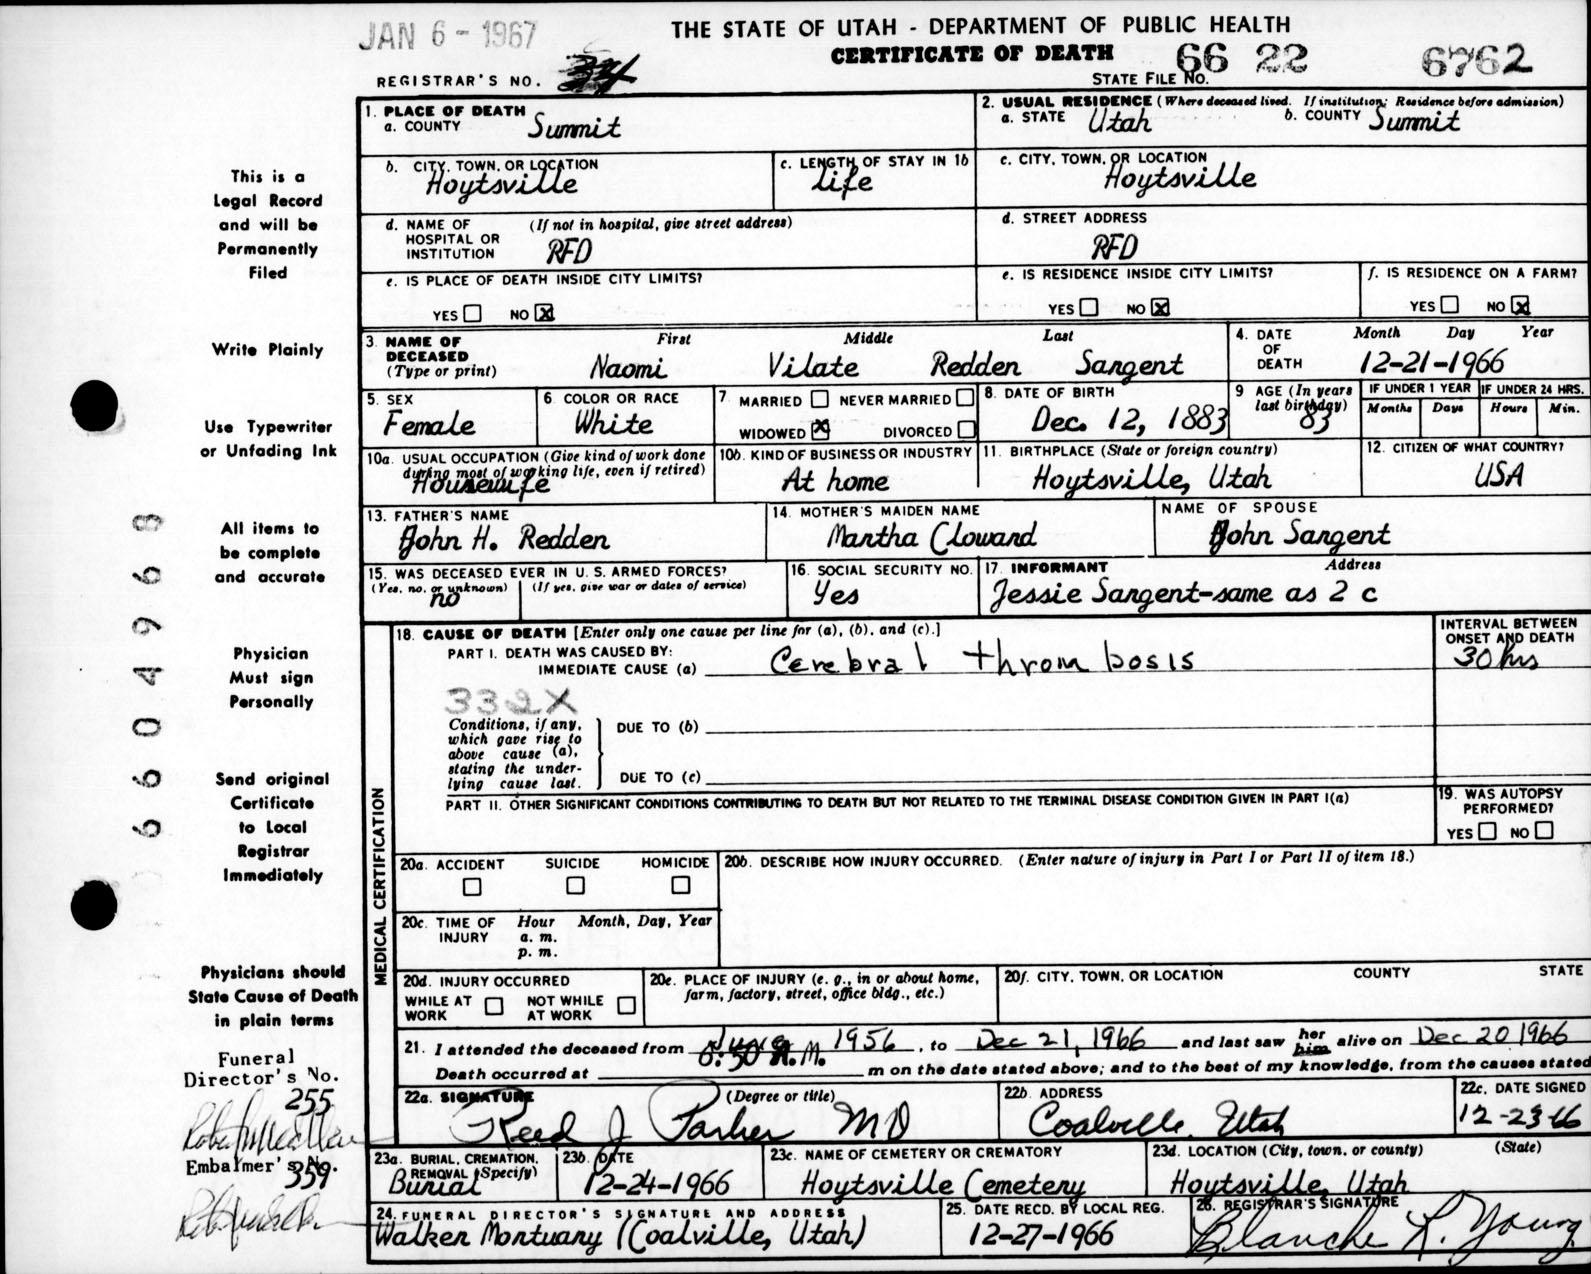 JAN 6 - 1967
THE STATE OF UTAH - DEPARTMENT OF PUBLIC HEALTH
CERTIFICATE OF DEATH
66 22 6762
REGISTRAR'S NO.
STATE FILE NO.
1. PLACE OF DEATH
a. COUNTY Summit
2. USUAL RESIDENCE (Where deceased lived. If institution: Residence before admission)
a. STATE Utah b. COUNTY Summit
b. CITY, TOWN, OR LOCATION
Hoytsville
c. LENGTH OF STAY IN 1b
Life
c. CITY, TOWN, OR LOCATION
Hoytsville
d. NAME OF HOSPITAL OR INSTITUTION (If not in hospital, give street address)
RFD
d. STREET ADDRESS
RFD
e. IS PLACE OF DEATH INSIDE CITY LIMITS?
YES NO X
e. IS RESIDENCE INSIDE CITY LIMITS?
YES NO X
f. IS RESIDENCE ON A FARM?
YES NO X
3. NAME OF DECEASED (Type or print)
First Middle Last
Naomi Vilate Redden Sargent
4. DATE OF DEATH Month Day Year
12-21-1966
5. SEX
Female
6. COLOR OR RACE
White
7. MARRIED NEVER MARRIED
WIDOWED X DIVORCED
8. DATE OF BIRTH
Dec. 12, 1883
9 AGE (In years last birthday)
83
IF UNDER 1 YEAR IF UNDER 24 HRS.
Months Days Hours Min.
10a. USUAL OCCUPATION (Give kind of work done during most of working life, even if retired)
Housewife
10b. KIND OF BUSINESS OR INDUSTRY
At home
11. BIRTHPLACE (State or foreign country)
Hoytsville, Utah
12. CITIZEN OF WHAT COUNTRY?
USA
13. FATHER'S NAME
John H. Redden
14. MOTHER'S MAIDEN NAME
Martha Cloward
NAME OF SPOUSE
John Sargent
15. WAS DECEASED EVER IN U. S. ARMED FORCES?
(Yes, no, or unknown) (If yes, give war or dates of service)
no
16. SOCIAL SECURITY NO.
Yes
17. INFORMANT Address
Jessie Sargent-same as 2 c
MEDICAL CERTIFICATION
18. CAUSE OF DEATH [Enter only one cause per line for (a), (b), and (c).]
PART I. DEATH WAS CAUSED BY:
IMMEDIATE CAUSE (a) Cerebral thrombosis
INTERVAL BETWEEN ONSET AND DEATH
30 hrs
332X
Conditions, if any, which gave rise to above cause (a), stating the underlying cause last.
DUE TO (b)
DUE TO (c)
PART II. OTHER SIGNIFICANT CONDITIONS CONTRIBUTING TO DEATH BUT NOT RELATED TO THE TERMINAL DISEASE CONDITION GIVEN IN PART I(a)
19. WAS AUTOPSY PERFORMED?
YES NO
20a. ACCIDENT SUICIDE HOMICIDE
20b. DESCRIBE HOW INJURY OCCURRED. (Enter nature of injury in Part I or Part II of item 18.)
20c. TIME OF INJURY Hour Month, Day, Year
a. m.
p. m.
20d. INJURY OCCURRED
WHILE AT WORK NOT WHILE AT WORK
20e. PLACE OF INJURY (e. g., in or about home, farm, factory, street, office bldg., etc.)
20f. CITY, TOWN, OR LOCATION COUNTY STATE
21. I attended the deceased from June 1956, to Dec 21, 1966 and last saw her him alive on Dec 20 1966
Death occurred at 6:30 A.M. m on the date stated above; and to the best of my knowledge, from the causes stated
22a. SIGNATURE (Degree or title)
Reed J Parker MD
22b. ADDRESS
Coalville, Utah
22c. DATE SIGNED
12-23-66
23a. BURIAL, CREMATION, REMOVAL (Specify)
Burial
23b. DATE
12-24-1966
23c. NAME OF CEMETERY OR CREMATORY
Hoytsville Cemetery
23d. LOCATION (City, town, or county) (State)
Hoytsville, Utah
24. FUNERAL DIRECTOR'S SIGNATURE AND ADDRESS
Walker Mortuary (Coalville, Utah)
25. DATE RECD. BY LOCAL REG.
12-27-1966
26. REGISTRAR'S SIGNATURE
Blanche R. Young
This is a
Legal Record
and will be
Permanently
Filed
Write Plainly
Use Typewriter
or Unfading Ink
All items to
be complete
and accurate
Physician
Must sign
Personally
Send original
Certificate
to Local
Registrar
Immediately
Physicians should
State Cause of Death
in plain terms
Funeral
Director's No.
255
Embalmer's No.
359
6604968